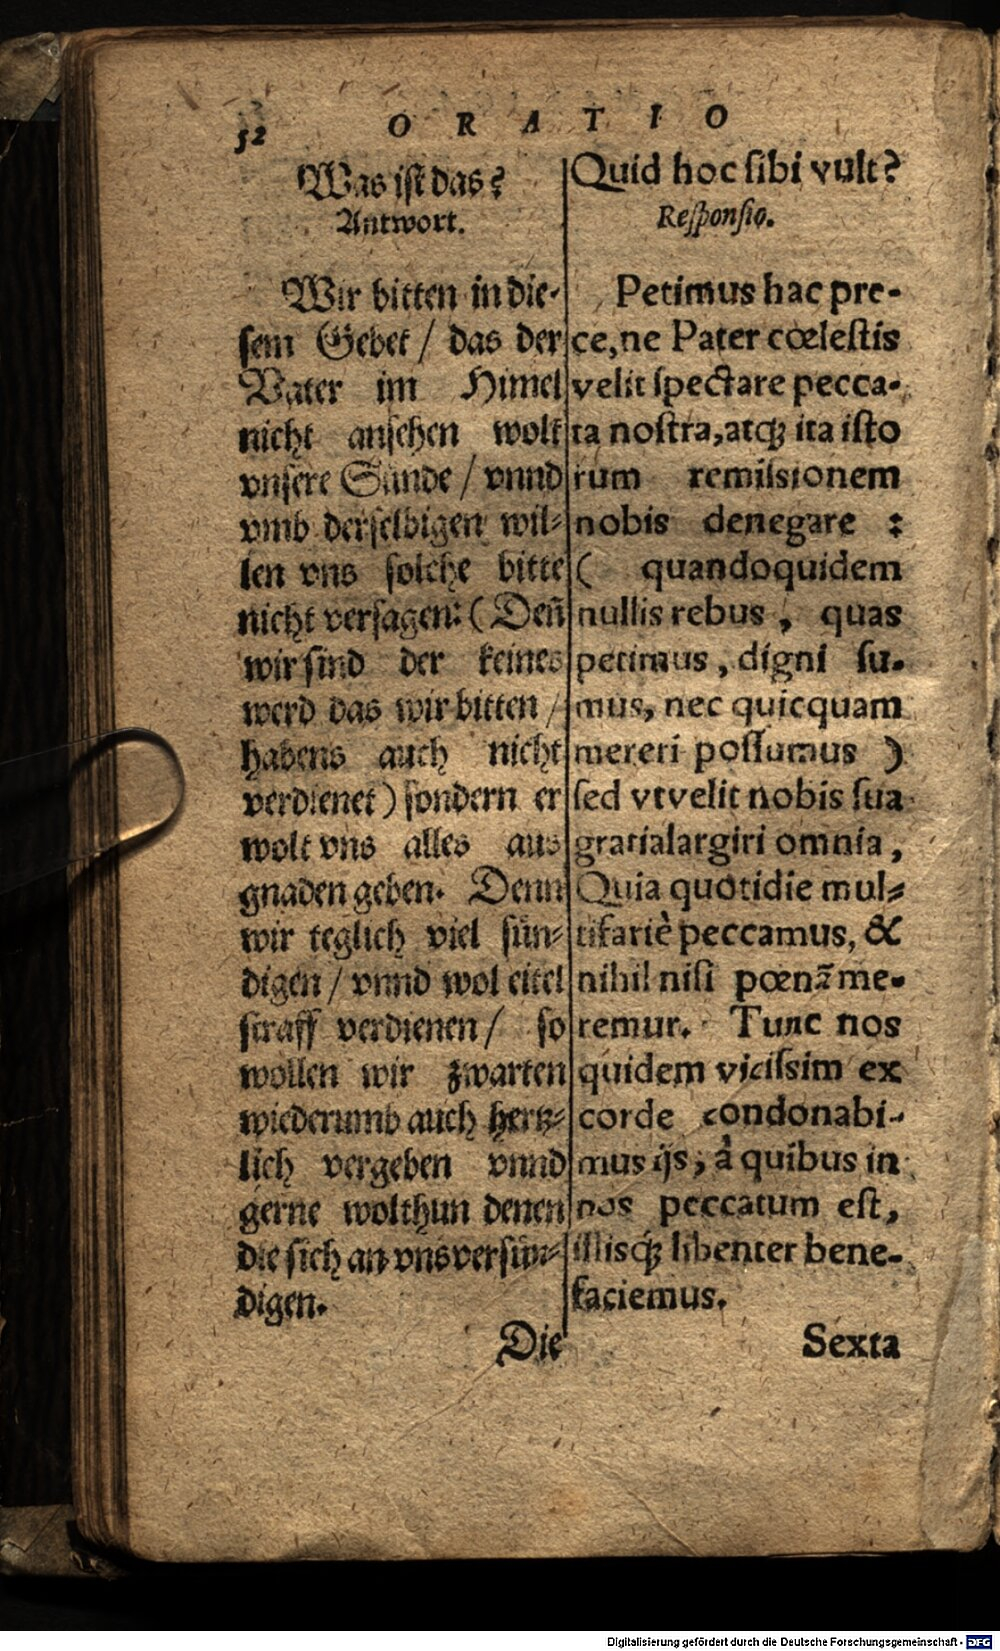 52 ORATIO
Was ist das?
Antwort.
Wir bitten in die-
sem Gebet / das der
Vater im Himel
nicht ansehen wolt
vnsere Sünde / vnnd
vmb derselbigen wil-
len vns solche bitte
nicht versagen: (Deñ
wir sind der keines
werd das wir bitten /
habens auch nicht
verdienet) sondern er
wolt vns alles aus
gnaden geben. Denn
wir teglich viel sün-
digen / vnnd wol eitel
straff verdienen / so
wollen wir zwarten
wiederumb auch hertz-
lich vergeben vnnd
gerne wolthun denen
die sich an vns versün-
digen.
Die
Quid hoc ſibi vult?
Reſponſio.
Petimus hac pre-
ce, ne Pater cœleſtis
velit ſpectare pecca-
ta noſtra, atq; ita iſto
rum remiſsionem
nobis denegare :
( quandoquidem
nullis rebus, quas
petimus, digni ſu-
mus, nec quicquam
mereri poſſumus )
ſed vt velit nobis ſua
gratia largiri omnia,
Quia quotidie mul-
tifariè peccamus, &
nihil niſi pœnã me-
remur. Tunc nos
quidem viciſsim ex
corde condonabi-
mus ijs, à quibus in
nos peccatum eſt,
illisq; libenter bene-
faciemus.
Sexta
Digitalisierung gefördert durch die Deutsche Forschungsgemeinschaft - DFG